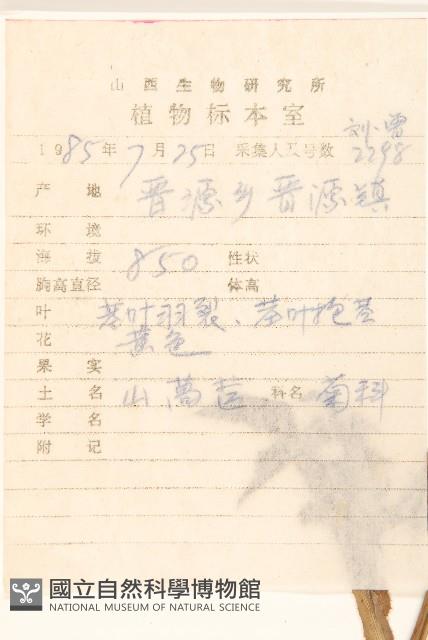 山西生物研究所
植物标本室
1985年7月25日 采集人及号数 刘 2298
产地 晋源乡晋源镇
环境
海拔 850 性状
胸高直径 体高
叶 茎叶羽裂、茎叶抱茎
花 黄色
果实
土名 山萵苣 科名 菊科
学名
附记
國立自然科學博物館
NATIONAL MUSEUM OF NATURAL SCIENCE